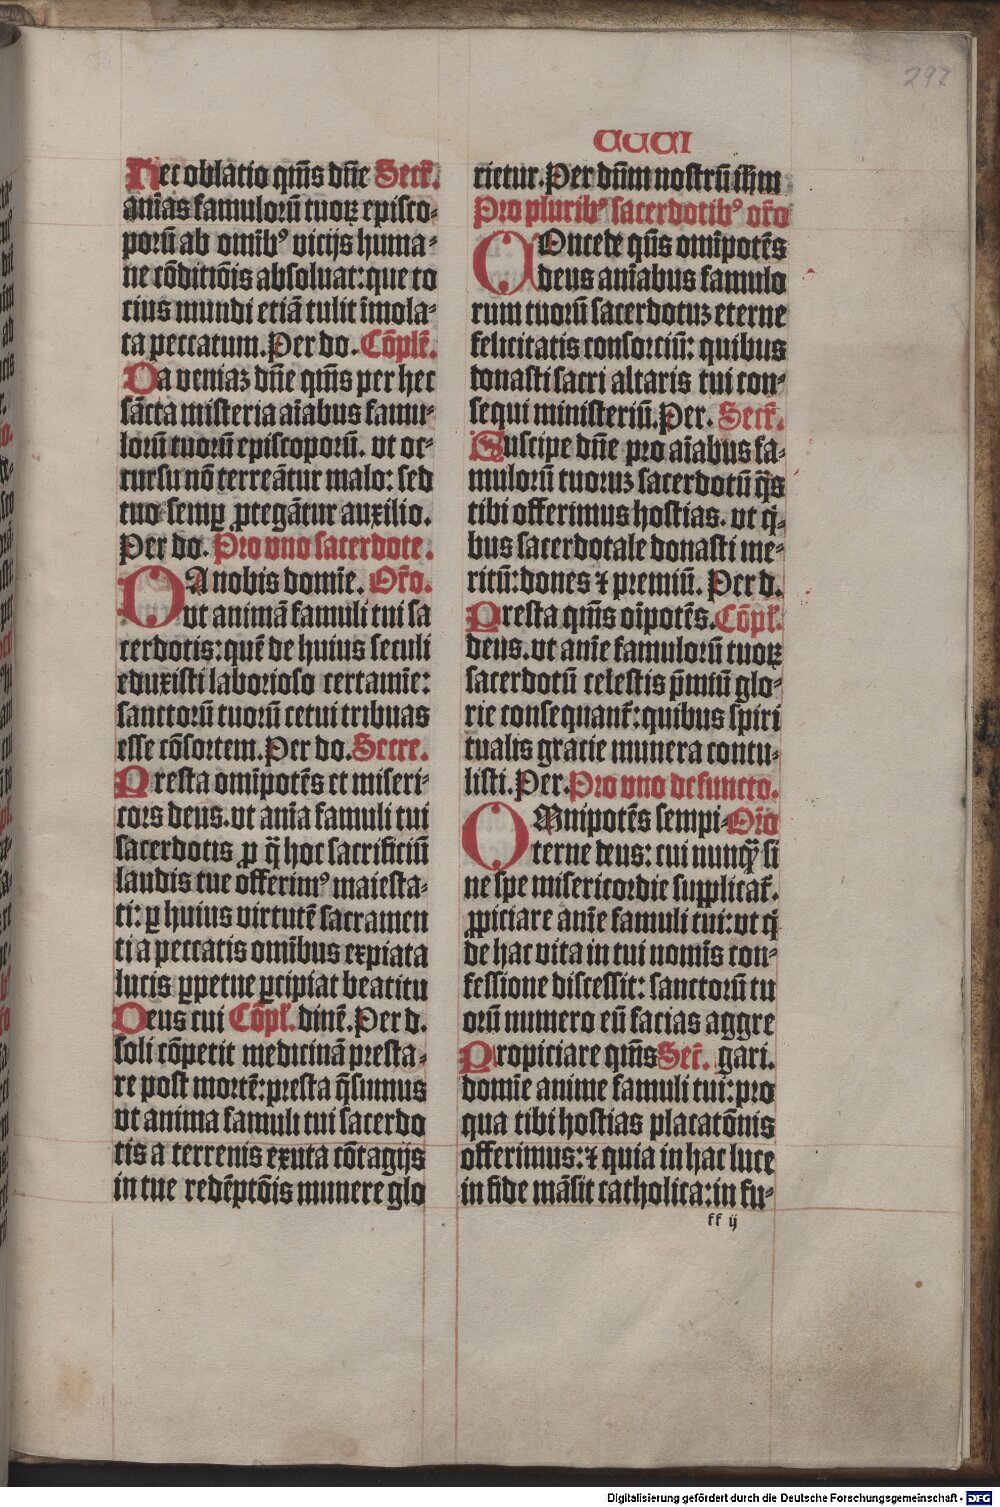 297
Hec oblatio q̄ms dn̄e Secr̄.
aīas famulorū tuoꝝ episco-
porū ab omībꝰ vicijs huma-
ne cōditiōis absoluat: que to
cius mundi etiā tulit īmola-
ta peccatum. Per do. Cōplē.
Da veniaꝫ dn̄e q̄ms per hec
sācta misteria aīabus famu-
lorū tuorū episcoporū. vt oc-
cursu nō terreātur malo: sed
tuo semꝑ ꝓtegātur auxilio.
Per do. Pro vno sacerdote.
DA nobis domīe. Orō.
vt animā famuli tui sa
cerdotis: quē de huius seculi
eduxisti laborioso certamīe:
sanctorū tuorū cetui tribuas
esse cōsortem. Per do. Secre.
Presta omīpotēs et miseri-
cors deus. vt anīa famuli tui
sacerdotis ꝓ q̄ hoc sacrificiū
laudis tue offerimꝰ maiesta-
ti: ꝑ huius virtutē sacramen
ti a peccatis omībus expiata
lucis ꝑpetue ꝑcipiat beatitu
Deus cui Cōpl̄. dinē. Per d.
soli cōpetit medicinā presta-
re post mortē: presta q̄sumus
vt anima famuli tui sacerdo
tis a terrenis exuta cōtagijs
in tue redēptōis munere glo
rietur. Per dn̄m nostrū ih̄m
Pro pluribꝰ sacerdotibꝰ orō
COncede q̄us omīpotēs
deus anīabus famulo
rum tuorū sacerdotuꝫ eterne
felicitatis consorciū: quibus
donasti sacri altaris tui con-
sequi ministeriū. Per. Secr̄.
Suscipe dn̄e pro aīabus fa-
mulorū tuoruꝫ sacerdotū q̄s
tibi offerimus hostias. vt q̄-
bus sacerdotale donasti me-
ritū: dones ⁊ premiū. Per d.
Presta q̄ms oīpotēs. Cōpl̄.
deus. vt anīe famulorū tuoꝝ
sacerdotū celestis p̄miū glo-
rie consequant᷑: quibus spiri
tualis gracie munera contu-
listi. Per. Pro vno defuncto.
OMnipotēs sempi- Orō
terne deus: cui nunq̄ȝ si
ne spe misericordie supplicat᷑.
ꝓpiciare anīe famuli tui: vt q̄
de hac vita in tui nomīs con-
fessione discessit: sanctorū tu
orū numero eū facias aggre
Propiciare q̄ms Secr̄. gari.
domīe anime famuli tui: pro
qua tibi hostias placatōnis
offerimus: ⁊ quia in hac luce
in fide māsit catholica: in fu-
ff ij
Digitalisierung gefördert durch die Deutsche Forschungsgemeinschaft - DFG